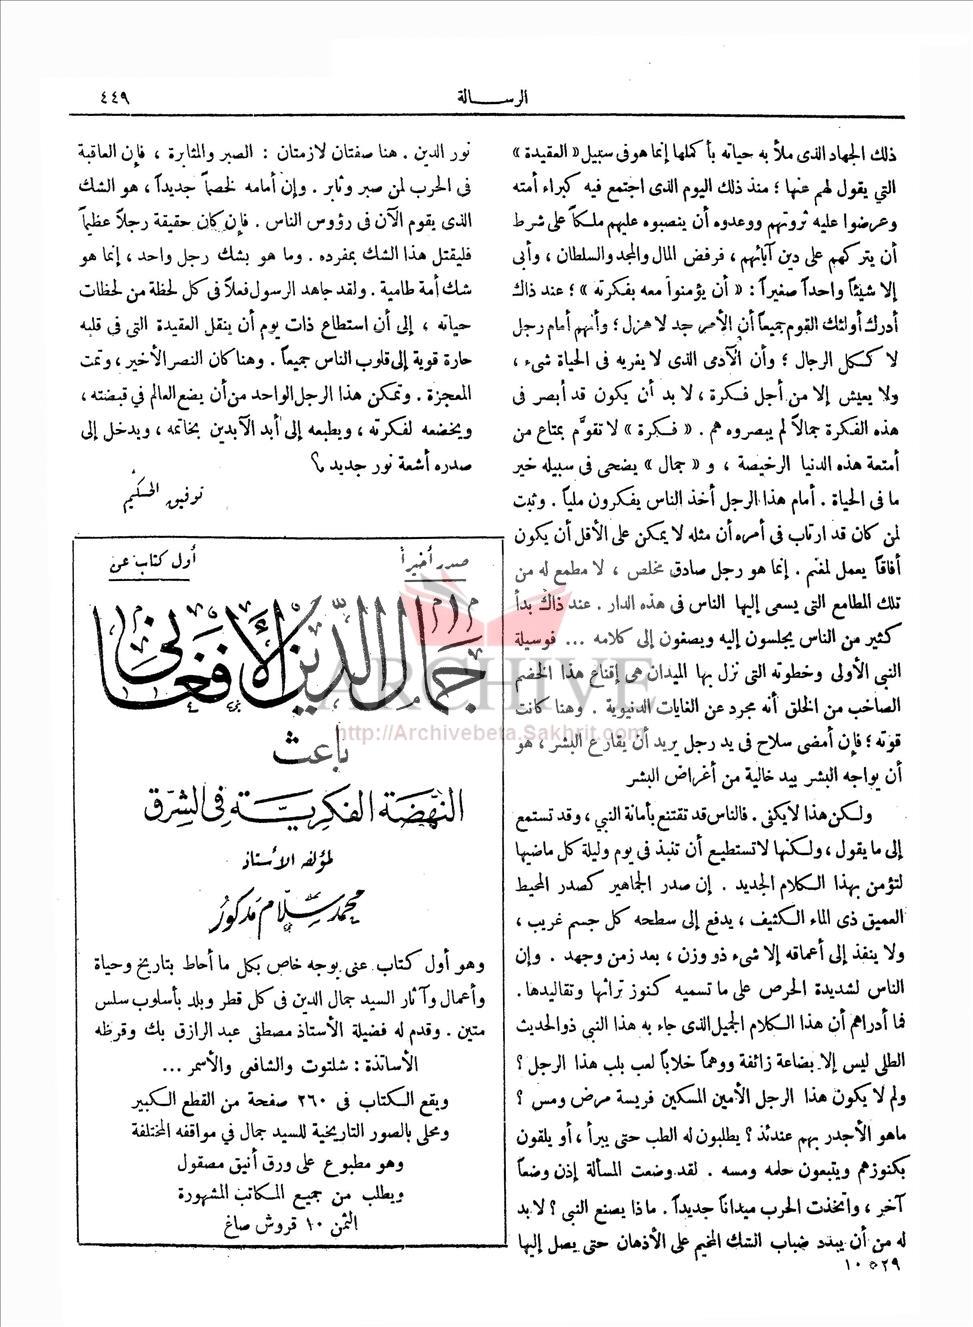 الرسالة
٤٤٩
ذلك الجهاد الذى ملأ به حياته بأكملها إنما هو فى سبيل « العقيدة »
التي يقول لهم عنها ؛ منذ ذلك اليوم الذى اجتمع فيه كبراء أمته
وعرضوا عليه ثروتهم ووعدوه أن ينصبوه عليهم ملكاً على شرط
أن يتركهم على دين آبائهم ، فرفض المال والمجد والسلطان ، وأبى
إلا شيئاً واحداً صغيراً : « أن يؤمنوا معه بفكرته » ؛ عند ذاك
أدرك أولئك القوم جميعاً أن الأمر جد لا هزل ؛ وأنهم أمام رجل
لا ككل الرجال ؛ وأن الآدمى الذى لا يغريه فى الحياة شىء ،
ولا يعيش إلا من أجل فكرة ، لا بد أن يكون قد أبصر فى
هذه الفكرة جمالاً لم يبصروه هم . « فكرة » لا تقوَّم بمتاع من
أمتعة هذه الدنيا الرخيصة ، و « جمال » يضحى فى سبيله خير
ما فى الحياة . أمام هذا الرجل أخذ الناس يفكرون ملياً . وثبت
لمن كان قد ارتاب فى أمره أن مثله لا يمكن على الأقل أن يكون
أفاقاً يعمل لمغنم . إنما هو رجل صادق مخلص ، لا مطمع له من
تلك المطامع التى يسعى إليها الناس فى هذه الدار . عند ذاك بدأ
كثير من الناس يجلسون إليه ويصغون إلى كلامه ... فوسيلة
النبي الأولى وخطوته التى نزل بها الميدان هى إقناع هذا الخضم
الصاخب من الخلق أنه مجرد عن الغايات الدنيوية . وهنا كانت
قوته ؛ فإن أمضى سلاح فى يد رجل يريد أن يقارع البشر ، هو
أن يواجه البشر بيد خالية من أغراض البشر
ولكن هذا لا يكفى . فالناس قد تقتنع بأمانة النبي ، وقد تستمع
إلى ما يقول ، ولكنها لا تستطيع أن تنبذ فى يوم وليلة كل ماضيها
لتؤمن بهذا الكلام الجديد . إن صدر الجماهير كصدر المحيط
العميق ذى الماء الكثيف ، يدفع إلى سطحه كل جسم غريب ،
ولا ينفذ إلى أعماقه إلا شىء ذو وزن ، بعد زمن وجهد . وإن
الناس لشديدة الحرص على ما تسميه كنوز تراثها وتقاليدها .
فما أدراهم أن هذا الكلام الجميل الذى جاء به هذا النبي ذو الحديث
الطلى ليس إلا بضاعة زائفة ووهماً خلاباً لعب بلب هذا الرجل ؟
ولم لا يكون هذا الرجل الأمين المسكين فريسة مرض ومس ؟
ماهو الأجدر بهم عندئذ ؟ يطلبون له الطب حتى يبرأ ، أو يلقون
بكنوزهم ويتبعون حلمه ومسه . لقد وضعت المسألة إذن وضعاً
آخر ، واتخذت الحرب ميداناً جديداً . ماذا يصنع النبي ؟ لا بد
له من أن يبدد ضباب الشك المخيم على الأذهان حتى يصل إليها
نور الدين . هنا صفتان لازمتان : الصبر والمثابرة ، فإن العاقبة
فى الحرب لمن صبر وثابر . وإن أمامه لخصماً جديداً ، هو الشك
الذى يقوم الآن فى رؤوس الناس . فإن كان حقيقة رجلاً عظيماً
فليقتل هذا الشك بمفرده . وما هو بشك رجل واحد ، إنما هو
شك أمة طامية . ولقد جاهد الرسول فعلاً فى كل لحظة من لحظات
حياته ، إلى أن استطاع ذات يوم أن ينقل العقيدة التى فى قلبه
حارة قوية إلى قلوب الناس جميعاً . وهنا كان النصر الأخير ، وتمت
المعجزة . وتمكن هذا الرجل الواحد من أن يضع العالم في قبضته ،
ويخضعه لفكرته ، ويطبعه إلى أبد الآبدين بخاتمه ، ويدخل إلى
صدره أشعة نور جديد ؟
توفيق الحكيم
صدر أخيراً
أول كتاب عن
جمال الدين الأفغاني
باعث
النهضة الفكرية فى الشرق
لمؤلفه الأستاذ
محمد سلام مدكور
وهو أول كتاب عنى بوجه خاص بكل ما أحاط بتاريخ وحياة
وأعمال وآثار السيد جمال الدين فى كل قطر وبلد بأسلوب سلس
متين . وقدم له فضيلة الأستاذ مصطفى عبد الرازق بك وقرظه
الأساتذة : شلتوت والشافعى والأسمر ...
ويقع الكتاب فى ٢٦٠ صفحة من القطع الكبير
ومحلى بالصور التاريخية للسيد جمال في مواقفه المختلفة
وهو مطبوع على ورق أنيق مصقول
ويطلب من جميع المكاتب الشهيرة
الثمن ١٠ قروش صاغ
ARCHIVE
http://Archivebeta.Sakhrit.com